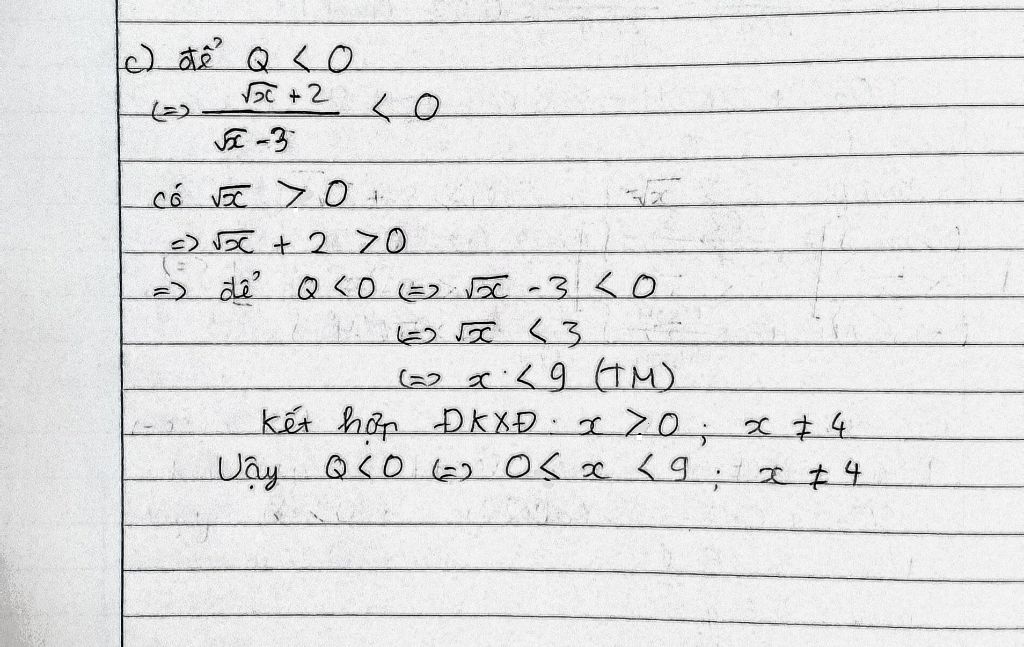 c) để Q < 0
(=) \frac{\sqrt{x} + 2}{\sqrt{x} - 3} < 0
có √x > 0
=) √x + 2 > 0
=) để Q < 0 (=) √x - 3 < 0
(=) √x < 3
(=) x < 9 (TM)
kết hợp ĐKXĐ. x ≥ 0 ; x ≠ 4
Vậy Q < 0 (=) 0 ≤ x < 9 ; x ≠ 4